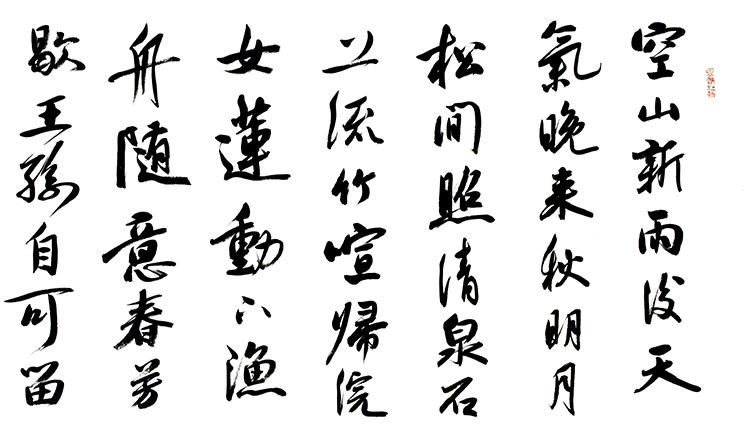 空山新雨後天
氣晚来秋明月
松間照清泉石
上流竹喧歸浣
女蓮動下漁
舟随意春芳
歇王孫自可留